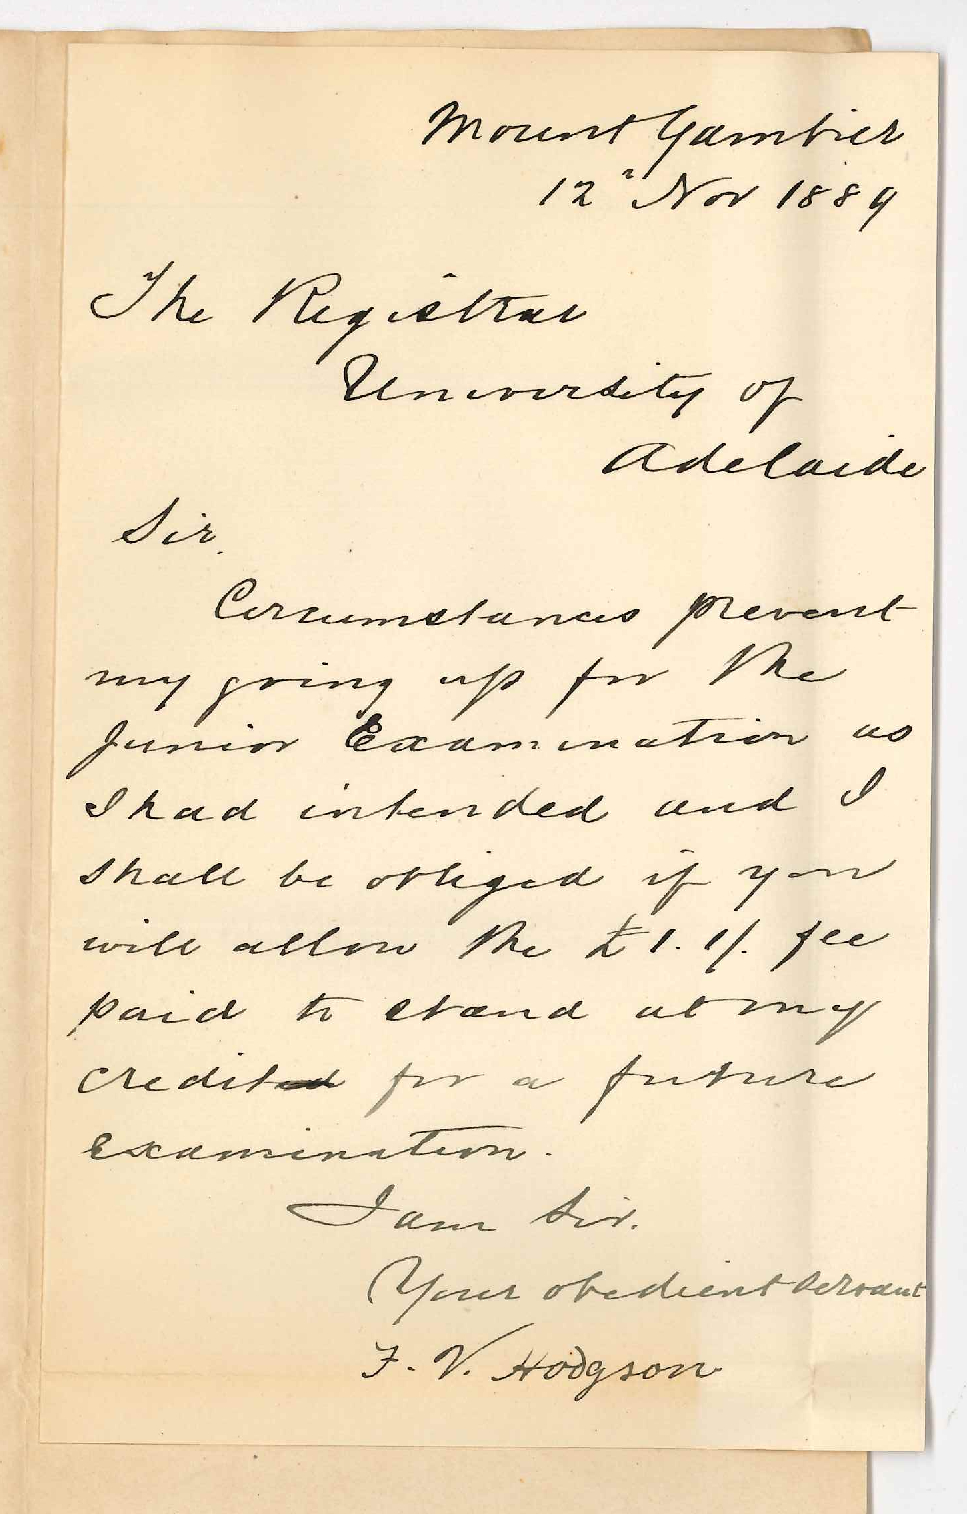 Mount Gambier
12" Nov 1889
The Registrar
University of
Adelaide
Sir,
Circumstances prevent
my going up for the
Junior Examination as
I had intended and I
shall be obliged if you
will allow the £1.1/. fee
paid to stand at my
credited for a future
examination.
I am Sir.
Your obedient servant
F. V. Hodgson